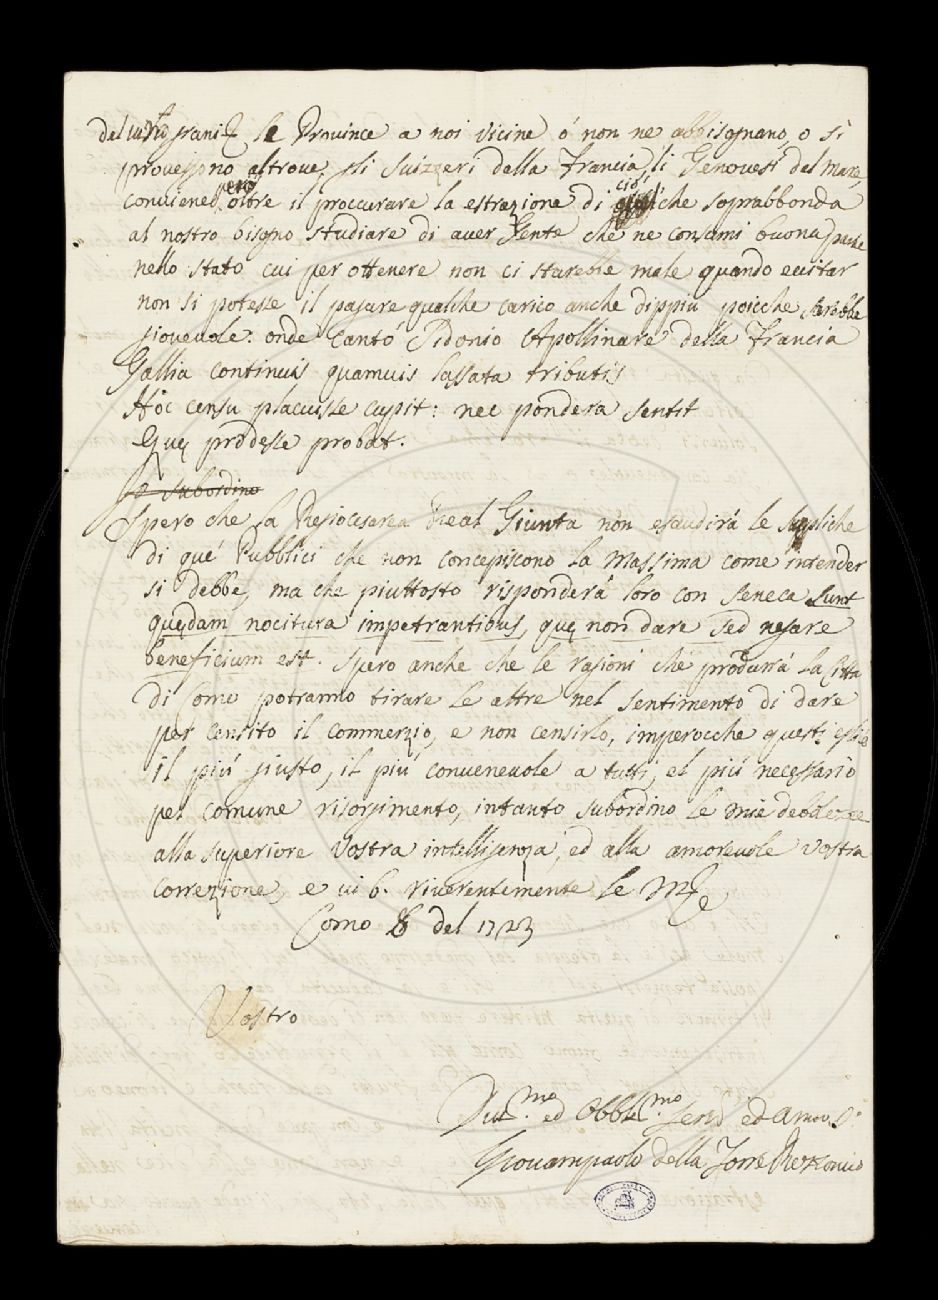 del vostro grani, le Province a noi vicine ó non ne abbisognano, o si
proveggono altrove, gli Suizzeri della Francia, li Genovesi del mare,
conviene peró oltre il proccurare la estrazione di ció, che soprabbonda
al nostro bisogno studiare di aver Gente che ne consumi buona parte
nello stato cui per ottenere non ci starebbe male quando evitar
non si potesse il pagare qualche carico anche dippiu poicche sarebbe
giovevole: onde cantó Sidonio Apollinare della Francia
Gallia continuis quamvis lassata tributis
Hoc censu placuisse cupit: nec pondera sentit
Quę prodesse probat.
Io subordino
Spero che la Regiocesarea Real Giunta non esaudirá le suppliche
di que Pubblici che non concepiscono la Massima come intender
si debbe, ma che piuttosto risponderá loro con Seneca sunt
quędam nocitura impetrantibus, quę non dare sed negare
beneficium est. Spero anche che le ragioni che produrrá la Cittá
di Como potranno tirare le altre nel sentimento di dare
per censito il commerzio, e non censirlo, imperocche questi
il piú giusto, il piú convenevole a tutti, el piú necessario
pel comune risorgimento, intanto subordino le mie debolezze
alla superiore Vostra intelligenza, ed alla amorevole vostra
correzione, e vi b. riverentemente le M
Como 8 del 1723
Vostro
Div.mo ed Obbl.mo Serv ed amor.
Giovampaolo della Torre Rezzonico